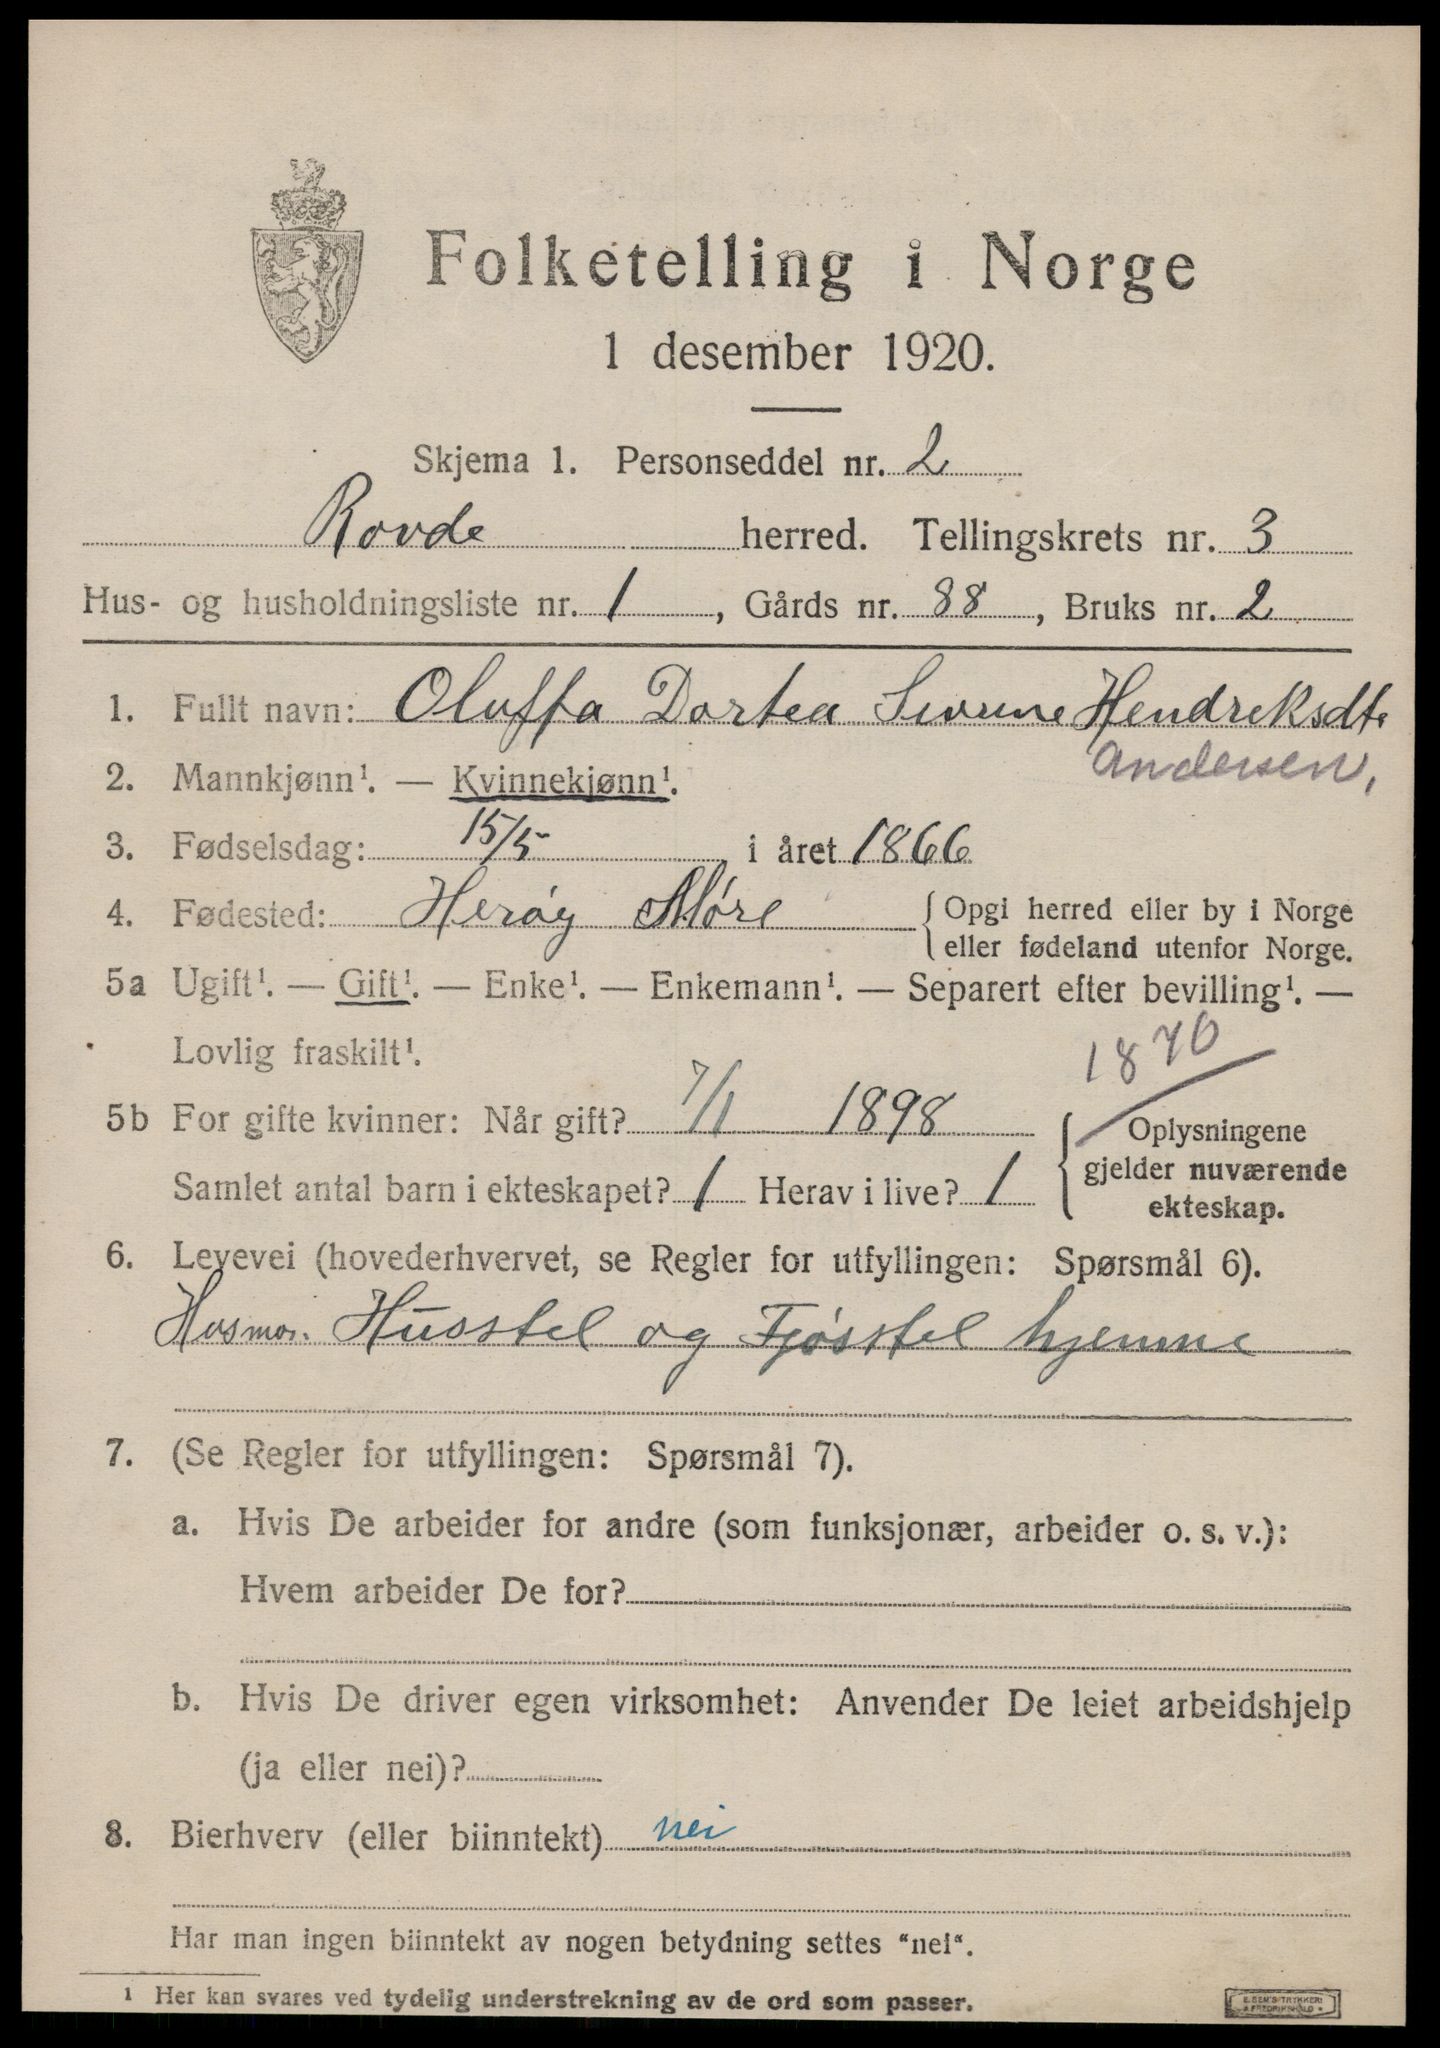 Folketelling i Norge
1 desember 1920.
Skjema 1. Personseddel nr. 2
Rovde herred. Tellingskrets nr. 3
Hus- og husholdningsliste nr. 1, Gårds nr. 88, Bruks nr. 2
1. Fullt navn: Oluffa Dortea Hendriksdtr
Andersen,
2. Mannkjønn¹. — Kvinnekjønn¹.
3. Fødselsdag: 15/5 i året 1866
4. Fødested: Herøy Møre { Opgi herred eller by i Norge
eller fødeland utenfor Norge.
5a Ugift¹. — Gift¹. — Enke¹. — Enkemann¹. — Separert efter bevilling¹. —
Lovlig fraskilt¹.
1870
5b For gifte kvinner: Når gift? 7/1 1898
Samlet antal barn i ekteskapet? 1 Herav i live? 1
{ Oplysningene
gjelder nuværende
ekteskap.
6. Levevei (hovederhvervet, se Regler for utfyllingen: Spørsmål 6).
Husmor. Husstel og Fjøsstel hjemme
7. (Se Regler for utfyllingen: Spørsmål 7).
a. Hvis De arbeider for andre (som funksjonær, arbeider o. s. v.):
Hvem arbeider De for?
b. Hvis De driver egen virksomhet: Anvender De leiet arbeidshjelp
(ja eller nei)?
8. Bierhverv (eller biinntekt) nei
Har man ingen biinntekt av nogen betydning settes "nei".
1 Her kan svares ved tydelig understrekning av de ord som passer.
E. SEM'S TRYKKERI
FREDRIKSHALD